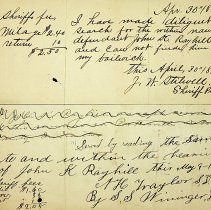 Sheriff fee
Milage 2.40
return 10
$2.50
Apr. 30" 18
I have made diligent
search for the within nam
defendant John K Rayhill
and can not find him
my bailiwick.
This April, 30" 18
J. W. Stilwell
Sheriff
Served by reading the Sum
to and within the hearin
of John K Rayhill this May 9
A H Traylor S.
By S S Wininger